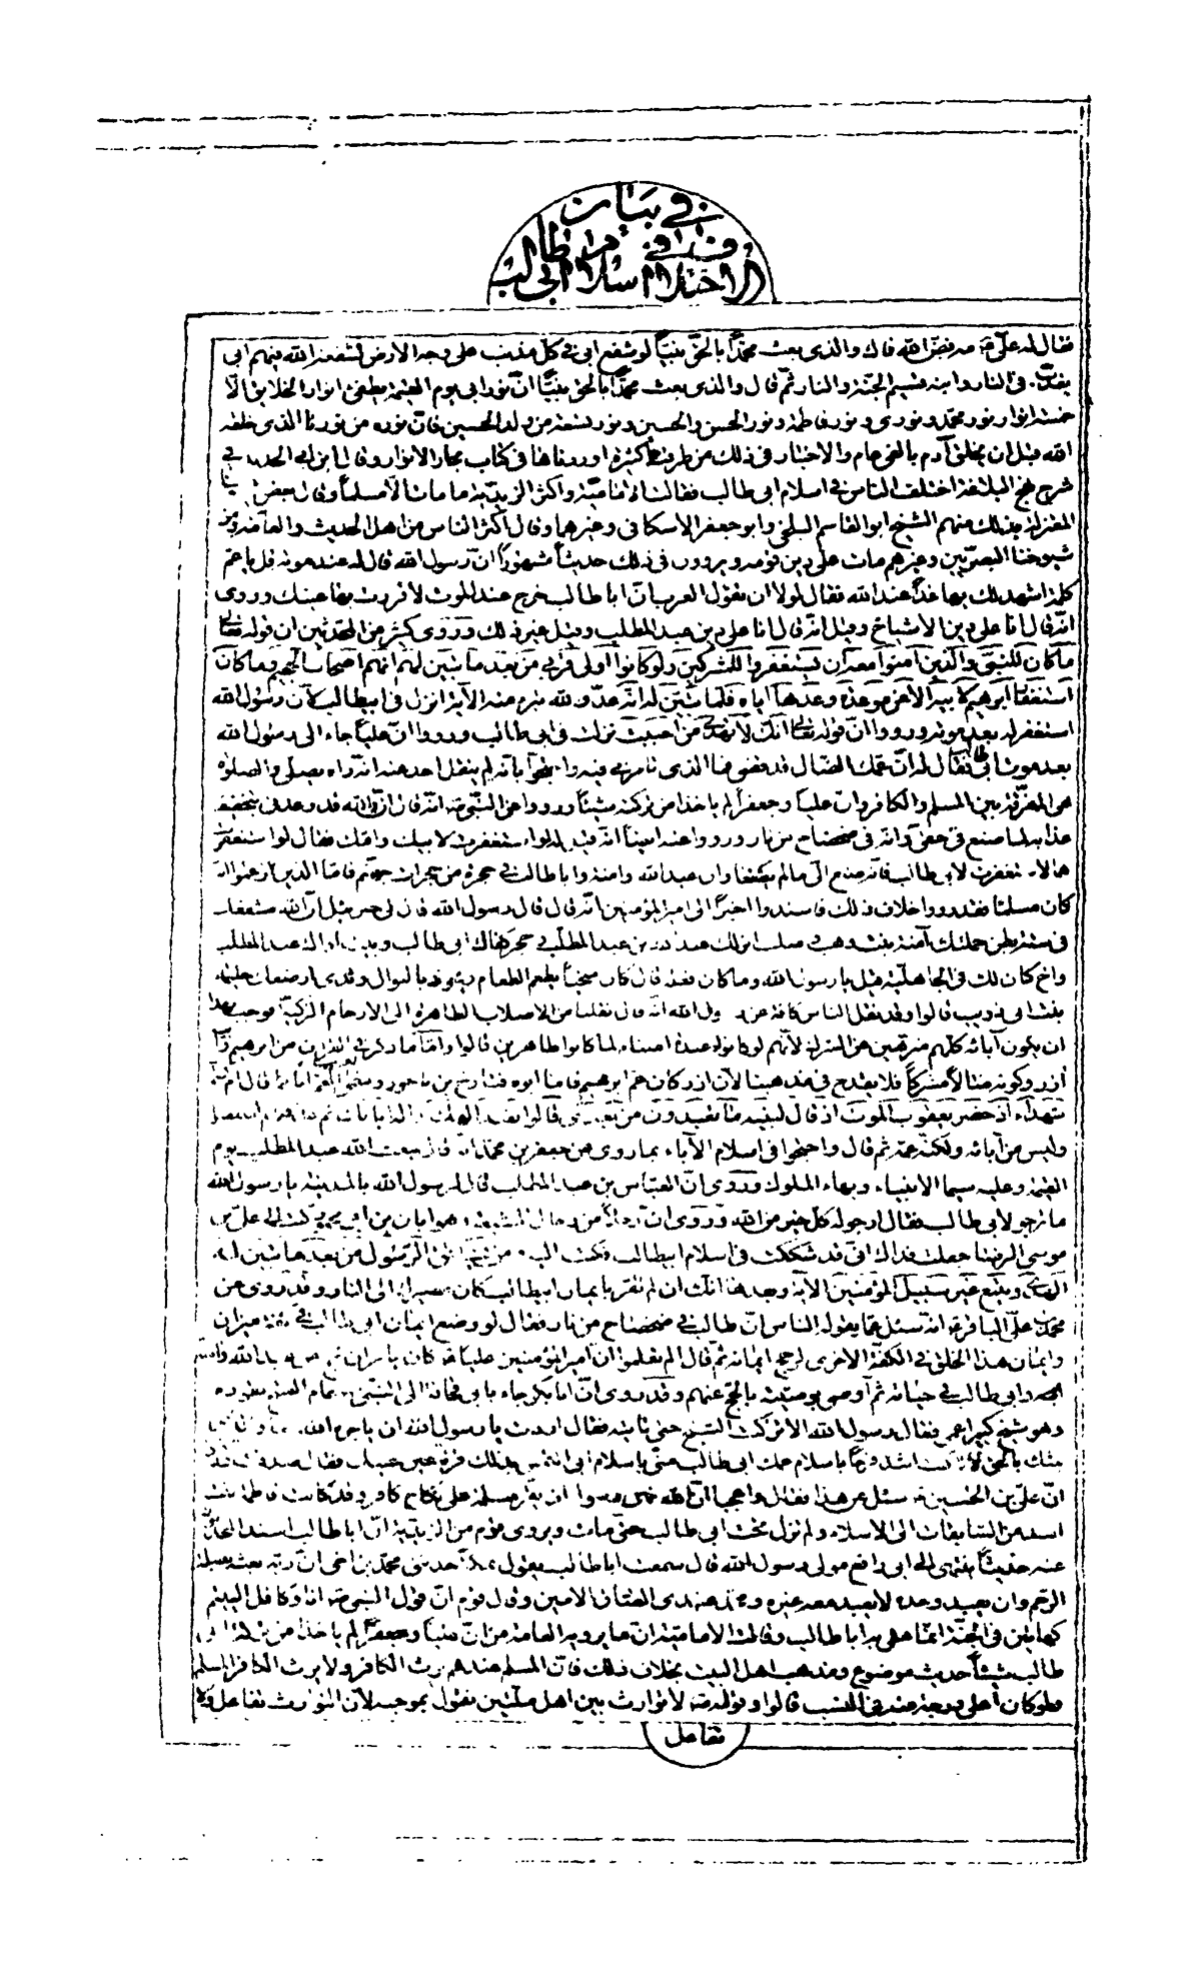 في بيان
الاختلاف في اسلام ابي طالب
فقال له علي مه فض الله فاك والذي بعث محمدا بالحق نبيا لو شفع ابي في كل مذنب على وجه الارض لشفعه الله فيهم ابي
يعذب في النار وابنه قسيم الجنة والنار ثم قال والذي بعث محمدا بالحق نبيا ان نور ابي يوم القيمة يطفئ انوار الخلايق الا
خمسة انوار نور محمد ونوري ونور فاطمة ونور الحسن والحسين ونور تسعة من ولد الحسين فان نوره من نورنا الذي خلقه
الله قبل ان يخلق آدم بالفي عام والاخبار في ذلك من طرقنا كثيرة اوردناها في كتاب بحار الانوار وقال ابن ابي الحديد في
شرح نهج البلاغة اختلف الناس في اسلام ابي طالب فقالت الامامية واكثر الزيدية ما مات الا مسلما وقال بعض شيوخنا
المعتزلة بذلك منهم الشيخ ابو القاسم البلخي وابو جعفر الاسكافي وغيرهما وقال اكثر الناس من اهل الحديث والعامة ومن
شيوخنا البصريين وغيرهم مات على دين قومه ويروون في ذلك حديثا مشهورا ان رسول الله قال له عند موته قل يا عم
كلمة اشهد لك بها غدا عند الله فقال لولا ان تقول العرب ان ابا طالب جزع عند الموت لاقررت بها عينك وروى
انه قال انا على دين الاشياخ وقيل انه قال انا على دين عبد المطلب وقيل غير ذلك وروى كثير من المحدثين ان قوله تعالى
ما كان للنبي والذين آمنوا معه ان يستغفروا للمشركين ولو كانوا اولي قربى من بعد ما تبين لهم انهم اصحاب الجحيم وما كان
استغفار ابراهيم لابيه الا عن موعدة وعدها اياه فلما تبين له انه عدو لله تبرء منه الآية انزل في ابيطالب لان رسول الله
استغفر له بعد موته ورووا ان قوله تعالى انك لا تهدي من احببت نزلت في ابي طالب ورووا ان عليا جاء الى رسول الله
بعد موت ابي طالب فقال له ان عمك الضال قد قضى فما الذي تامرني فيه واحتجوا بانه لم ينقل احد عنه انه رآه يصلي والصلوة
هي المفرقة بين المسلم والكافر وان عليا وجعفرا لم ياخذا من تركته شيئا ورووا عن النبي انه قال ان الله قد وعدني بتخفيف
عذابه لما صنع في حقي وانه في ضحضاح من نار ورووا عنه ايضا انه قيل له لو استغفرت لابيك وامك فقال لو استغفرت
لهما لاستغفرت لابي طالب فانه صنع الي ما لم يصنعا وان عبد الله وآمنة وابا طالب في حجرة من حجرات جهنم فاما الذين زعموا انه
كان مسلما فقد رووا خلاف ذلك فاسندوا اخبرا الى امير المؤمنين انه قال قال رسول الله قال لي جبرئيل ان الله مشفعك
في ستة بطن حملتك آمنة بنت وهب صلب انزلك عبد الله بن عبد المطلب حجر كفلك ابي طالب وبيت آواك عبد المطلب
واخ كان لك في الجاهلية قيل يا رسول الله وما كان فعله قال كان سخيا يطعم الطعام ويجود بالنوال وثدي ارضعك حليمة
بنت ابي ذويب قالوا وقد نقل الناس كافة عن رسول الله انه قال نقلنا من الاصلاب الطاهرة الى الارحام الزكية فوجب بهذا
ان يكون آبائه كلهم منزهين عن الشرك لانهم لو كانوا عبدة اصنام لما كانوا طاهرين قالوا واما ما ذكر في القرآن من ابراهيم
آزر وكونه ضالا مشركا فلا يقدح في مذهبنا لان آزر كان عم ابراهيم فاما ابوه فتارخ بن ناحور وسمي العم ابا كما قال ام كنتم
شهداء اذ حضر يعقوب الموت اذ قال لبنيه ما تعبدون من بعدي قالوا نعبد الهك واله آبائك ثم عد فيهم اسمعيل
وليس من آبائه ولكنه عمه ثم قال واحتجوا في اسلام الآباء بما روي عن جعفر بن محمد انه قال يبعث الله عبد المطلب يوم
القيمة وعليه سيما الانبياء وبهاء الملوك وروى ان العباس بن عبد المطلب قال لرسول الله بالمدينة يا رسول الله
ما ترجو لابي طالب فقال ارجو له كل خير من الله وروى ان رجلا من رجال الشيعة وهو ابان بن ابي محمود كتب الى علي بن
موسى الرضا جعلت فداك اني قد شككت في اسلام ابيطالب فكتب اليه ومن يشاقق الرسول من بعد ما تبين له
الهدى ويتبع غير سبيل المؤمنين الآية وبعدها انك ان لم تقر بايمان ابيطالب كان مصيرك الى النار وقد روى عن
محمد بن علي الباقر انه سئل عما يقوله الناس ان ابا طالب في ضحضاح من نار فقال لو وضع ايمان ابي طالب في كفة ميزان
وايمان هذا الخلق في الكفة الاخرى لرجح ايمانه ثم قال الم تعلموا ان امير المؤمنين عليا كان يامر ان يحج عن عبد الله وآمنة
وابي طالب في حياته ثم اوصى بوصيته بالحج عنهم وقد روى ان ابا بكر جاء بابي قحافة الى النبي عام الفتح يقوده
وهو شيخ كبير اعمى فقال رسول الله الا تركت الشيخ حتى ناتيه فقال اردت يا رسول الله ان ياجره الله اما والذي
بعثك بالحق لانا كنت اشد فرحا باسلام عمك ابي طالب مني باسلام ابي التمس بذلك قرة عينك فقال صدقت وروى
ان علي بن الحسين سئل عن هذا فقال واعجبا ان الله نهى رسوله ان يقر مسلمة على نكاح كافر وقد كانت فاطمة بنت
اسد من السابقات الى الاسلام ولم تزل تحت ابي طالب حتى مات ويروى قوم من الزيدية ان ابا طالب اسند المحدثون
عنه حديثا ينتهي الى ابي رافع مولى رسول الله قال سمعت ابا طالب يقول بمكة حدثني محمد بن اخي ان ربه بعثه بصلة
الرحم وان يعبده وحده لا يعبد معه غيره ومحمد عندي الصادق الامين وقال قوم ان قول النبي انا وكافل اليتيم
كهاتين في الجنة انما عنى به ابا طالب وقالت الامامية ان ما يرويه العامة من ان عليا وجعفرا لم ياخذا من تركة ابي
طالب شيئا حديث موضوع ومذهب اهل البيت بخلاف ذلك فان المسلم عندهم يرث الكافر ولا يرث الكافر المسلم
ولو كان اعلى درجة منه في النسب قالوا وقوله لا توارث بين اهل ملتين نقول بموجبه لان التوارث تفاعل ولا
تفاعل